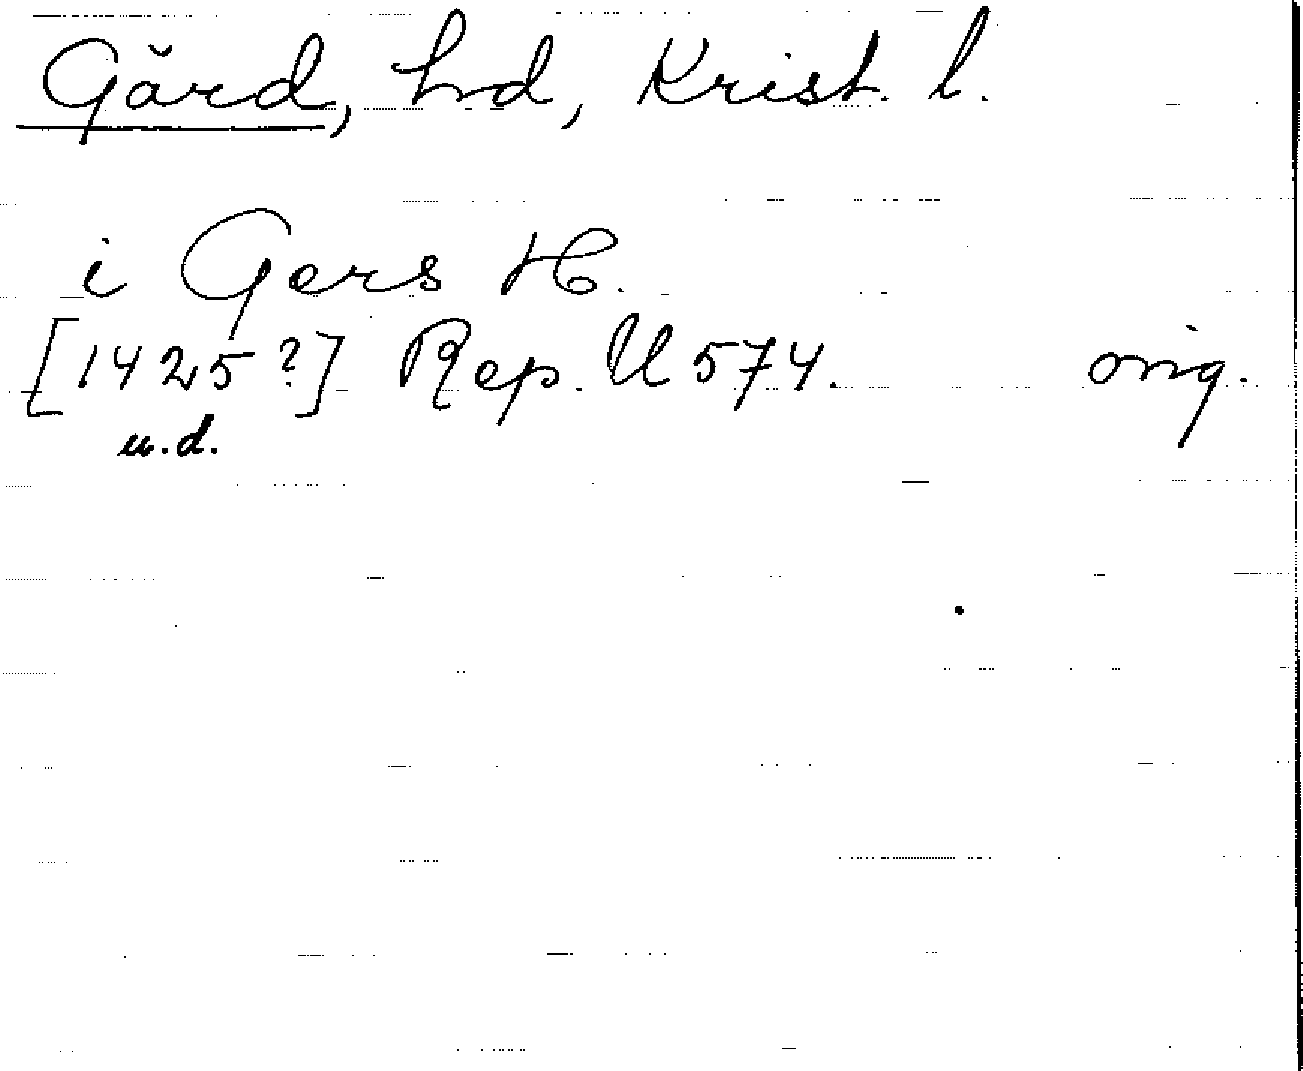 Gård, hd, Krist. l.
i Gers H.
[1425?] Rep. U 574. orig.
u.d.